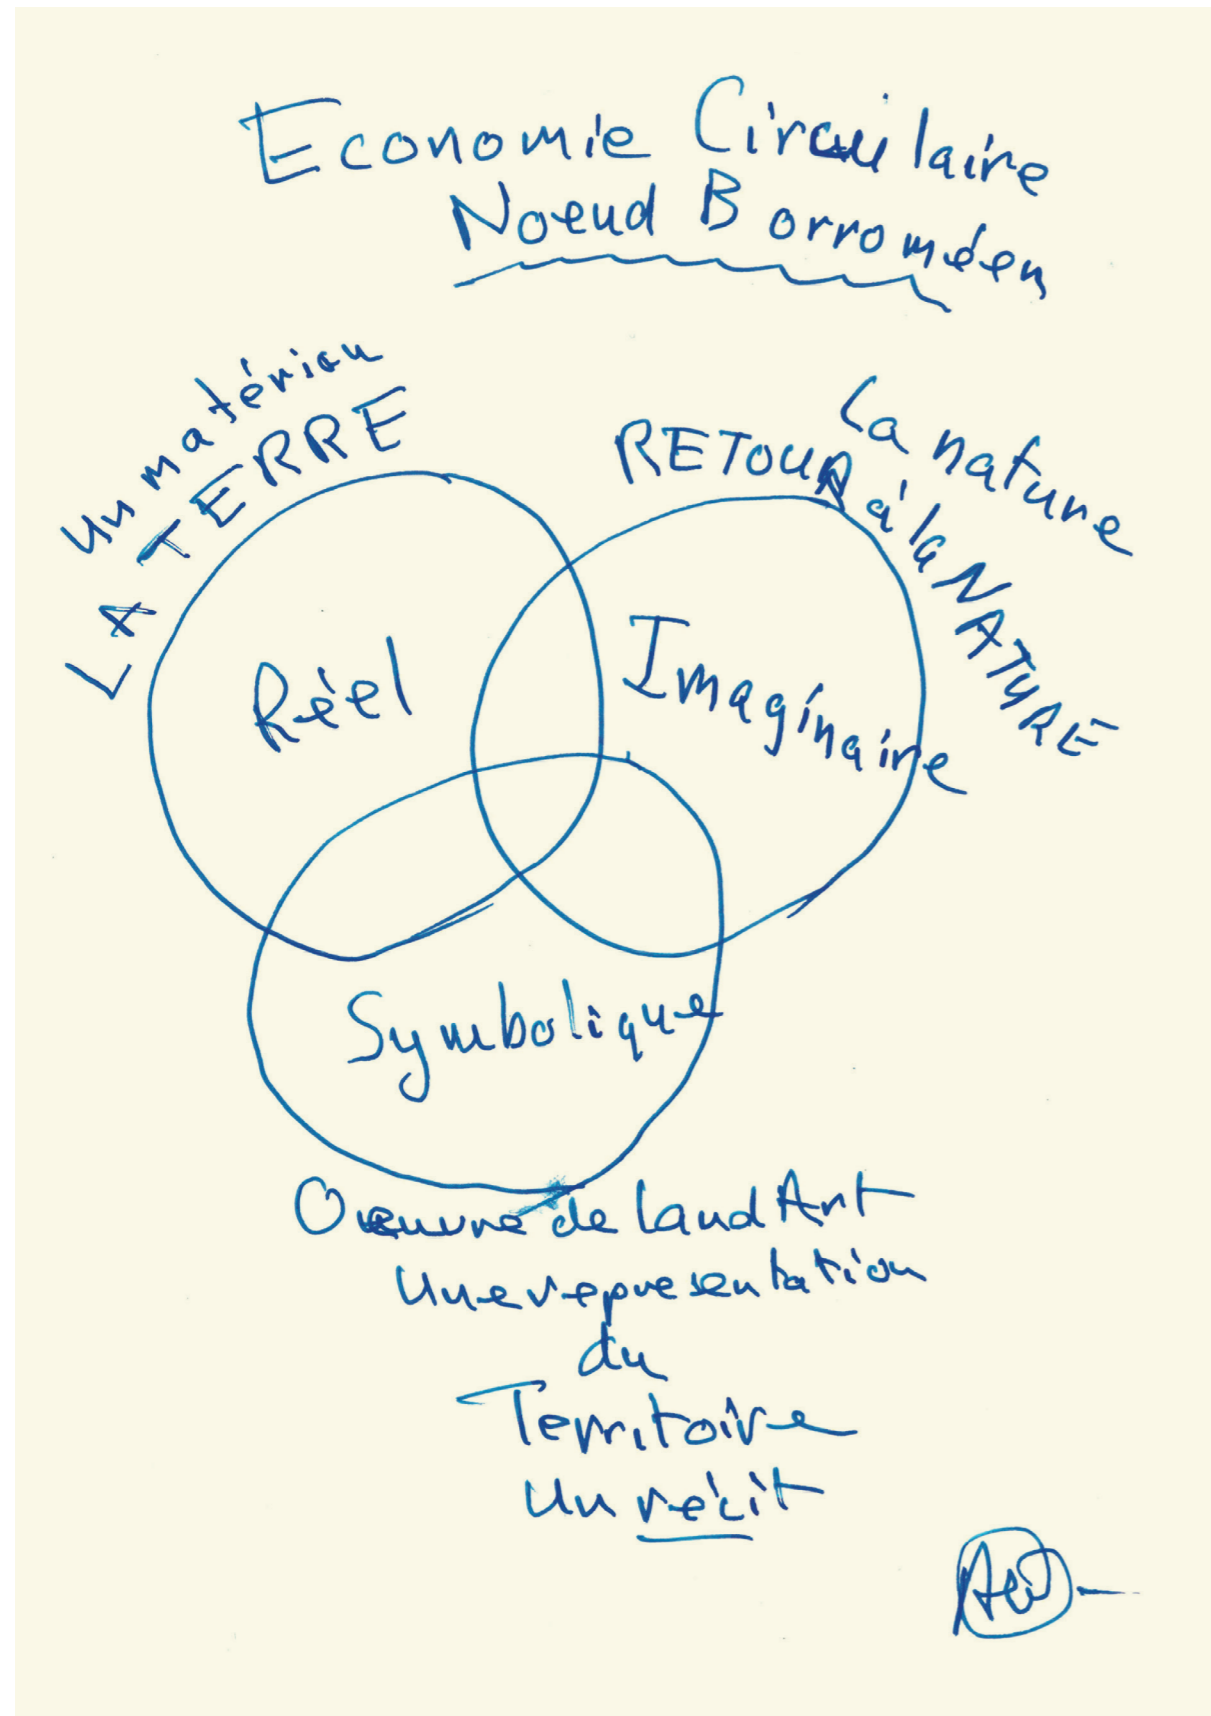 Economie Circulaire
Noeud Borroméen
Un matériau
LA TERRE
La nature
RETOUR à la NATURE
Réel
Imaginaire
Symbolique
Oeuvre de Land Art
Une representation
du
Territoire
Un récit